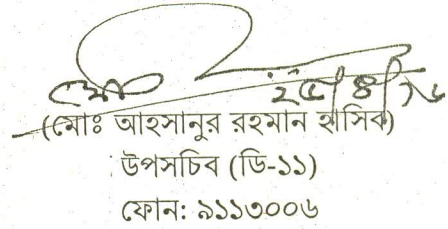 ২৫/৪/১৬
(মোঃ আহসানুর রহমান হাসিব)
উপসচিব (ডি-১১)
ফোন: ৯১১৩০০৬